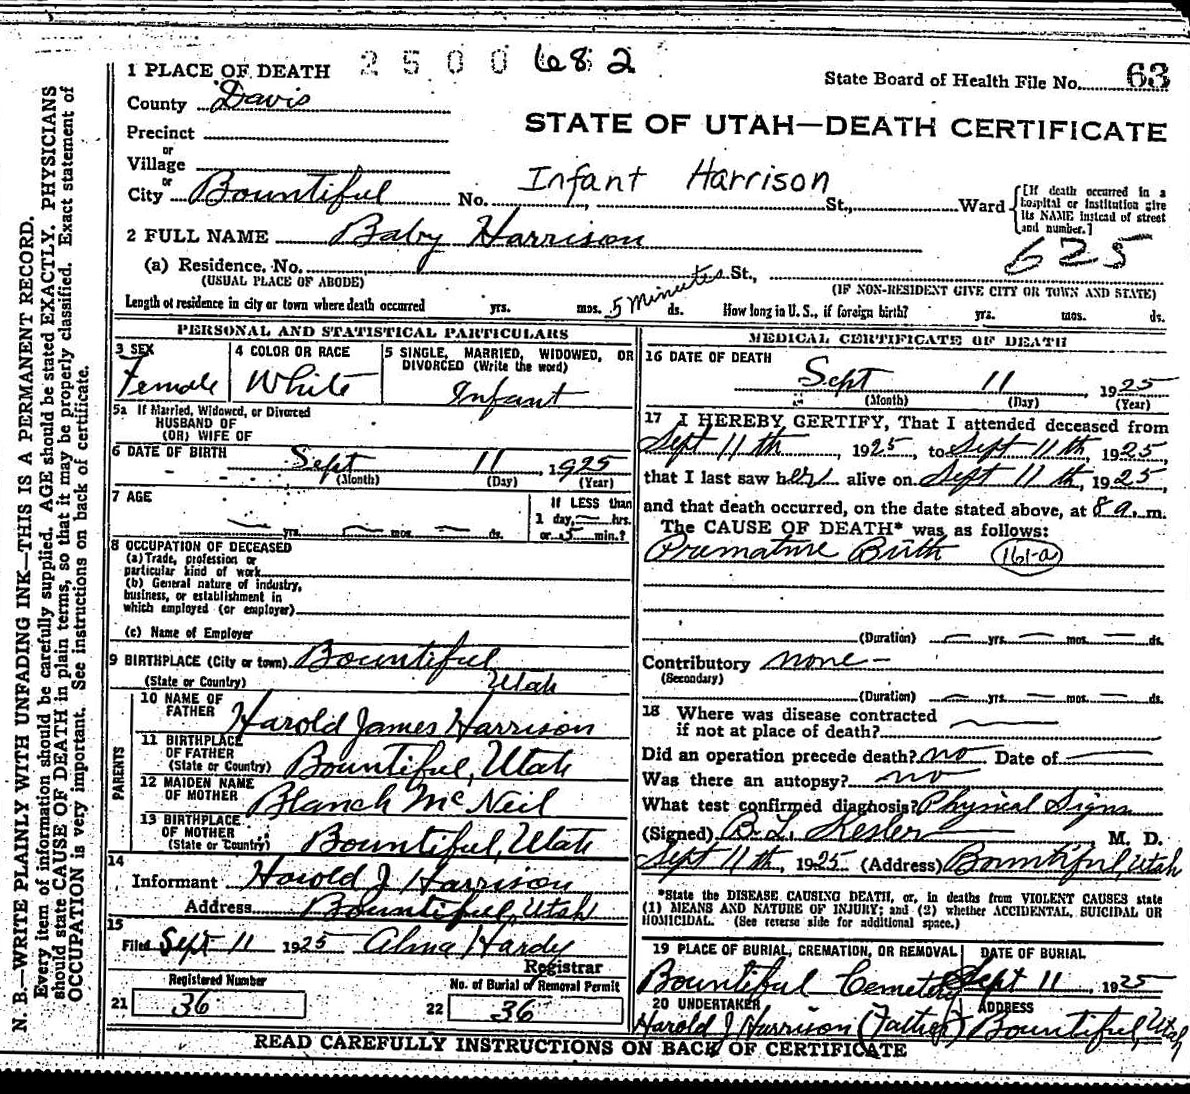 2 5 0 0 682
1 PLACE OF DEATH
State Board of Health File No. 63
County Davis
STATE OF UTAH—DEATH CERTIFICATE
Precinct
or
Village
or
Infant Harrison
City Bountiful No. St., Ward
[If death occurred in a hospital or institution give its NAME instead of street and number.]
2 FULL NAME Baby Harrison
625
(a) Residence. No. St.,
(USUAL PLACE OF ABODE)
(IF NON-RESIDENT GIVE CITY OR TOWN AND STATE)
Length of residence in city or town where death occurred yrs. mos. 5 Minutes ds. How long in U. S., if foreign birth? yrs. mos. ds.
PERSONAL AND STATISTICAL PARTICULARS
3 SEX
Female
4 COLOR OR RACE
White
5 SINGLE, MARRIED, WIDOWED, OR
DIVORCED (Write the word)
Infant
5a If Married, Widowed, or Divorced
HUSBAND OF
(OR) WIFE OF
6 DATE OF BIRTH Sept 11, 1925
(Month) (Day) (Year)
7 AGE
yrs. ds.
If LESS than
1 day, — hrs.
or 5 min.?
8 OCCUPATION OF DECEASED
(a) Trade, profession or
particular kind of work
(b) General nature of industry,
business, or establishment in
which employed (or employer)
(c) Name of Employer
9 BIRTHPLACE (City or town) Bountiful
(State or Country) Utah
PARENTS
10 NAME OF
FATHER Harold James Harrison
11 BIRTHPLACE
OF FATHER
(State or Country) Bountiful, Utah
12 MAIDEN NAME
OF MOTHER Blanch McNeil
13 BIRTHPLACE
OF MOTHER
(State or Country) Bountiful, Utah
14
Informant Harold J Harrison
Address Bountiful, Utah
15
Filed Sept 11 1925 Alma Hardy
Registrar
Registered Number
21 36
No. of Burial of Removal Permit
22 36
MEDICAL CERTIFICATE OF DEATH
16 DATE OF DEATH
Sept 11 1925
(Month) (Day) (Year)
17 I HEREBY CERTIFY, That I attended deceased from
Sept 11th, 1925, to Sept 11th, 1925,
that I last saw her alive on Sept 11th, 1925,
and that death occurred, on the date stated above, at 8 a. m.
The CAUSE OF DEATH* was as follows:
Premature Birth 161-a
(Duration) — yrs. — mos. — ds.
Contributory none —
(Secondary)
(Duration) — yrs. — mos. — ds.
18 Where was disease contracted
if not at place of death?
Did an operation precede death? no Date of —
Was there an autopsy? no
What test confirmed diagnosis? Physical Signs
(Signed) B. L. Kesler M. D.
Sept 11th, 1925 (Address) Bountiful, Utah
*State the DISEASE CAUSING DEATH, or, in deaths from VIOLENT CAUSES state
(1) MEANS AND NATURE OF INJURY; and (2) whether ACCIDENTAL, SUICIDAL OR
HOMICIDAL. (See reverse side for additional space.)
19 PLACE OF BURIAL, CREMATION, OR REMOVAL
Bountiful Cemetery
DATE OF BURIAL
Sept 11, 1925
20 UNDERTAKER
Harold J Harrison (Father)
ADDRESS
Bountiful, Utah
READ CAREFULLY INSTRUCTIONS ON BACK OF CERTIFICATE
N. B.—WRITE PLAINLY WITH UNFADING INK—THIS IS A PERMANENT RECORD.
Every item of information should be carefully supplied. AGE should be stated EXACTLY. PHYSICIANS
should state CAUSE OF DEATH in plain terms, so that it may be properly classified. Exact statement of
OCCUPATION is very important. See instructions on back of certificate.